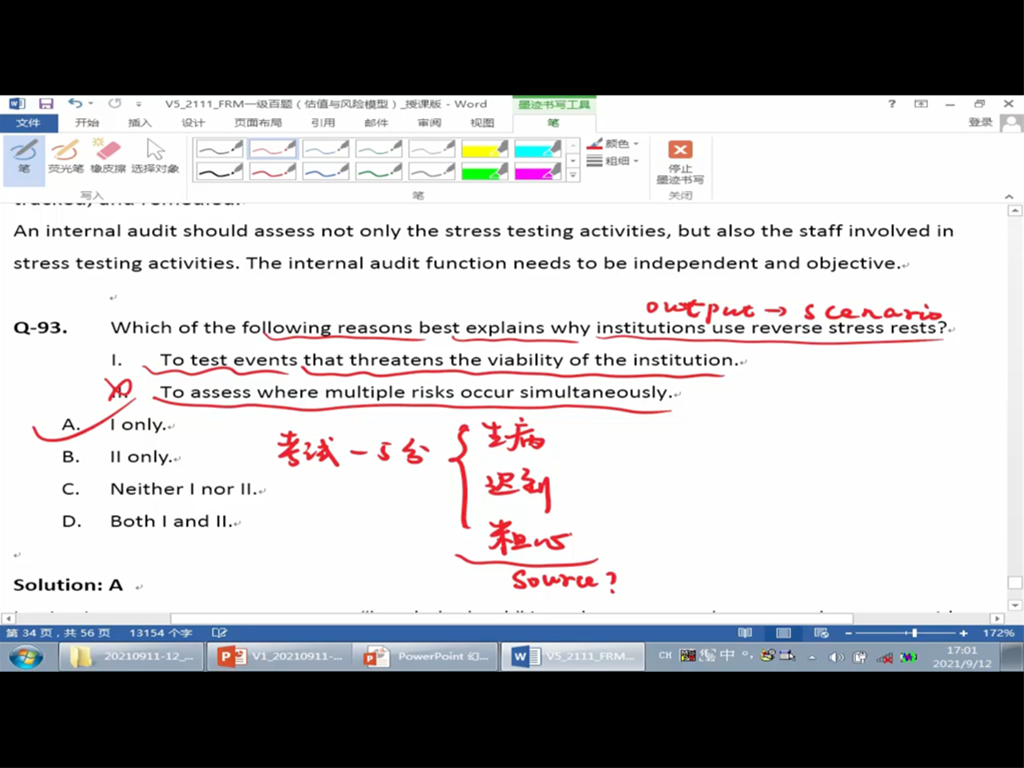 V5_2111_FRM一级百题（估值与风险模型）_授课版 - Word
墨迹书写工具
文件 开始 插入 设计 页面布局 引用 邮件 审阅 视图 笔 登录
笔 荧光笔 橡皮擦 选择对象
颜色
粗细
停止
墨迹书写
写入 笔 关闭
An internal audit should assess not only the stress testing activities, but also the staff involved in
stress testing activities. The internal audit function needs to be independent and objective.
output → scenario
Q-93. Which of the following reasons best explains why institutions use reverse stress rests?
I. To test events that threatens the viability of the institution.
II. To assess where multiple risks occur simultaneously.
A. I only.
B. II only.
C. Neither I nor II.
D. Both I and II.
考试 -5分
生病
迟到
粗心
source?
Solution: A
第 34 页，共 56 页 13154 个字 172%
20210911-12_... V1_20210911-... PowerPoint 幻... V5_2111_FRM...
CH 中
17:01
2021/9/12